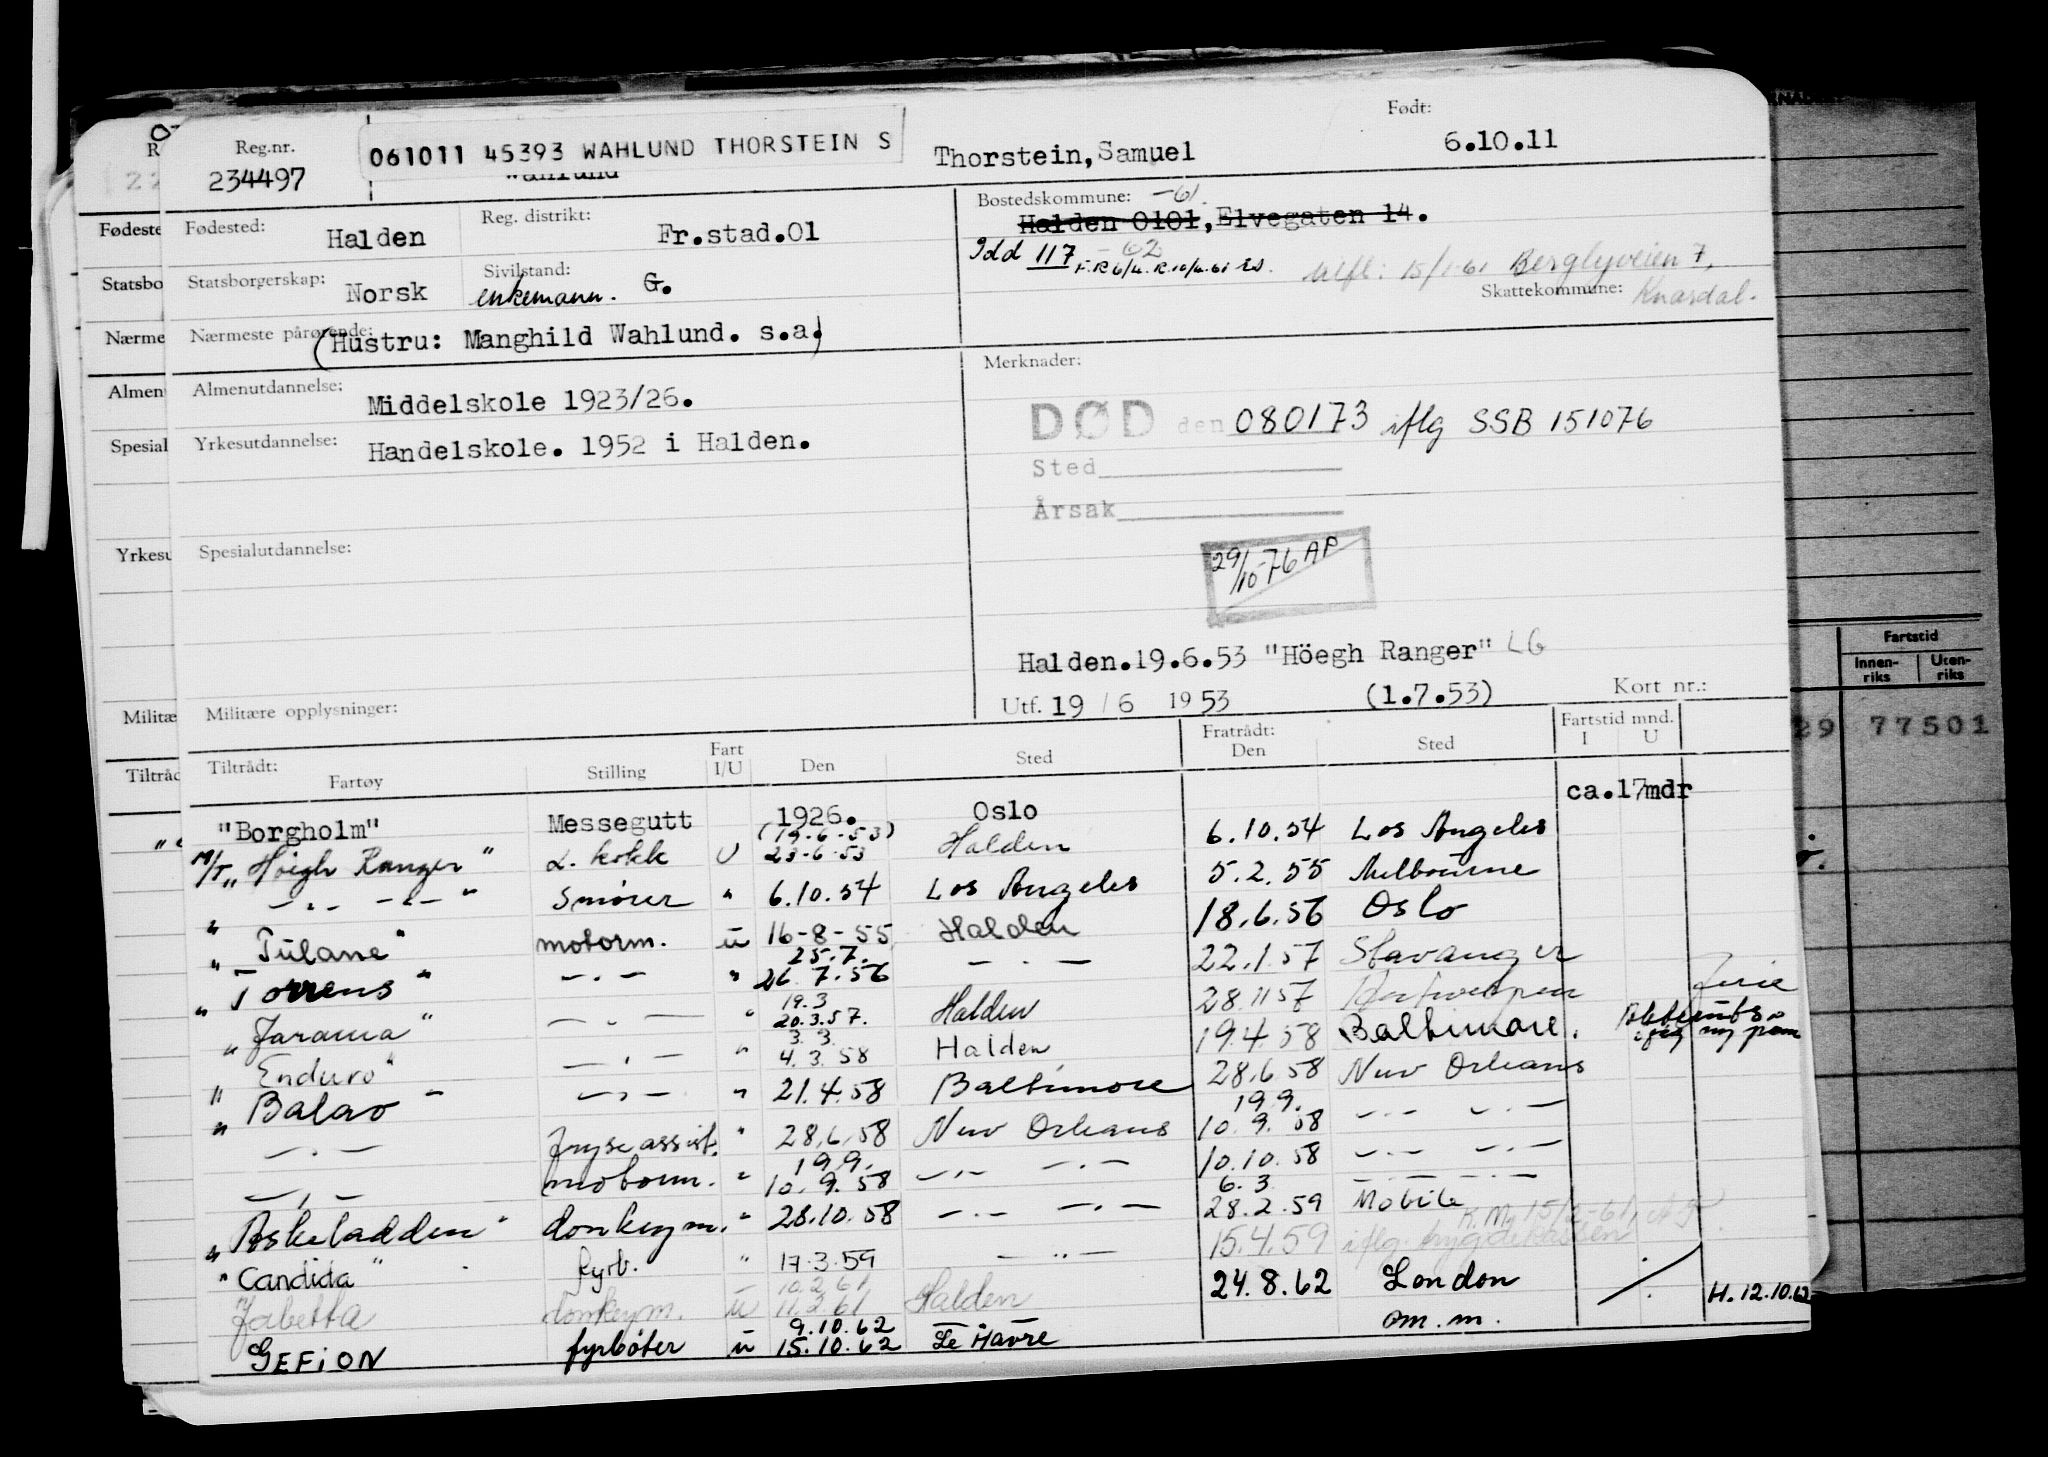 Reg.nr.
234497
061011 45393 WAHLUND THORSTEIN S
Wahlund
Thorstein, Samuel
Født:
6.10.11
Fødeste
Fødested:
Halden
Reg. distrikt:
Fr.stad.01
Bostedskommune: -61.
Halden 0101, Elvegaten 14.
Idd 117 -62
Statsbo
Statsborgerskap:
Norsk
Sivilstand:
enkemann. G.
15/1-61 Berglyveien 7,
Skattekommune:
Nærme
Nærmeste pårørende:
(Hustru: Manghild Wahlund. s.a.)
Almen
Almenutdannelse:
Middelskole 1923/26.
Merknader:
DØD den 080173 iflg SSB 151076
Spesial
Yrkesutdannelse:
Handelskole. 1952 i Halden.
Sted
Årsak
Yrkesu
Spesialutdannelse:
29/10-76 AP
Halden.19.6.53 "Höegh Ranger" LG
Militæ
Militære opplysninger:
Utf. 19 / 6 1953
(1.7.53)
Kort nr.:
Fartstid
Innen-riks
Uten-riks
29 77501
Tiltråd
Tiltrådt:
Fartøy
Stilling
Fart I/U
Den
Sted
Fratrådt:
Den
Sted
Fartstid mnd.
I U
"Borgholm" Messegutt 1926. Oslo ca.17mdr
M/T "Höigh Ranger" 2. kokk U (19-6-53) 23-6-53 Halden 6.10.54 Los Angeles
" -"- -"- " Smører " 6.10.54 Los Angeles 5.2.55 Melbourne
" Tulane" motorm. u 16-8-55 Halden 18.6.56 Oslo
" Torrens " -"- " 25.7. 26.7.56 -"- 22.1.57 Stavanger
" Jarama " -"- " 19.3 20.3.57. Halden 28.11 57 Antwerpen
" Enduro" -"- " 3.3. 4.3.58 Halden 19.4.58 Baltimore.
" Balao " -"- " 21.4.58 Baltimore 28.6.58 New Orleans
-"- fryseassist. " 28.6.58 New Orleans 19.9. 10.9.58 -"- -"-
-"- motorm. " 19.9. 10.9.58 -"- -"- 10.10.58 -"- -"-
" Askeladden " donkeym. " 28.10.58 -"- -"- 6.3 28.2.59 Mobile
" Candida " fyrb. " 17.3.59 -"- 15.4.59 iflg. trygdekassen
K.M. 15/2-61
Jabetta donkeym. u 10.2.61 11.2.61 Halden 24.8.62 London
GEFION fyrbøter u 9.10.62 15.10.62 Le Havre om.m.
H. 12.10.62